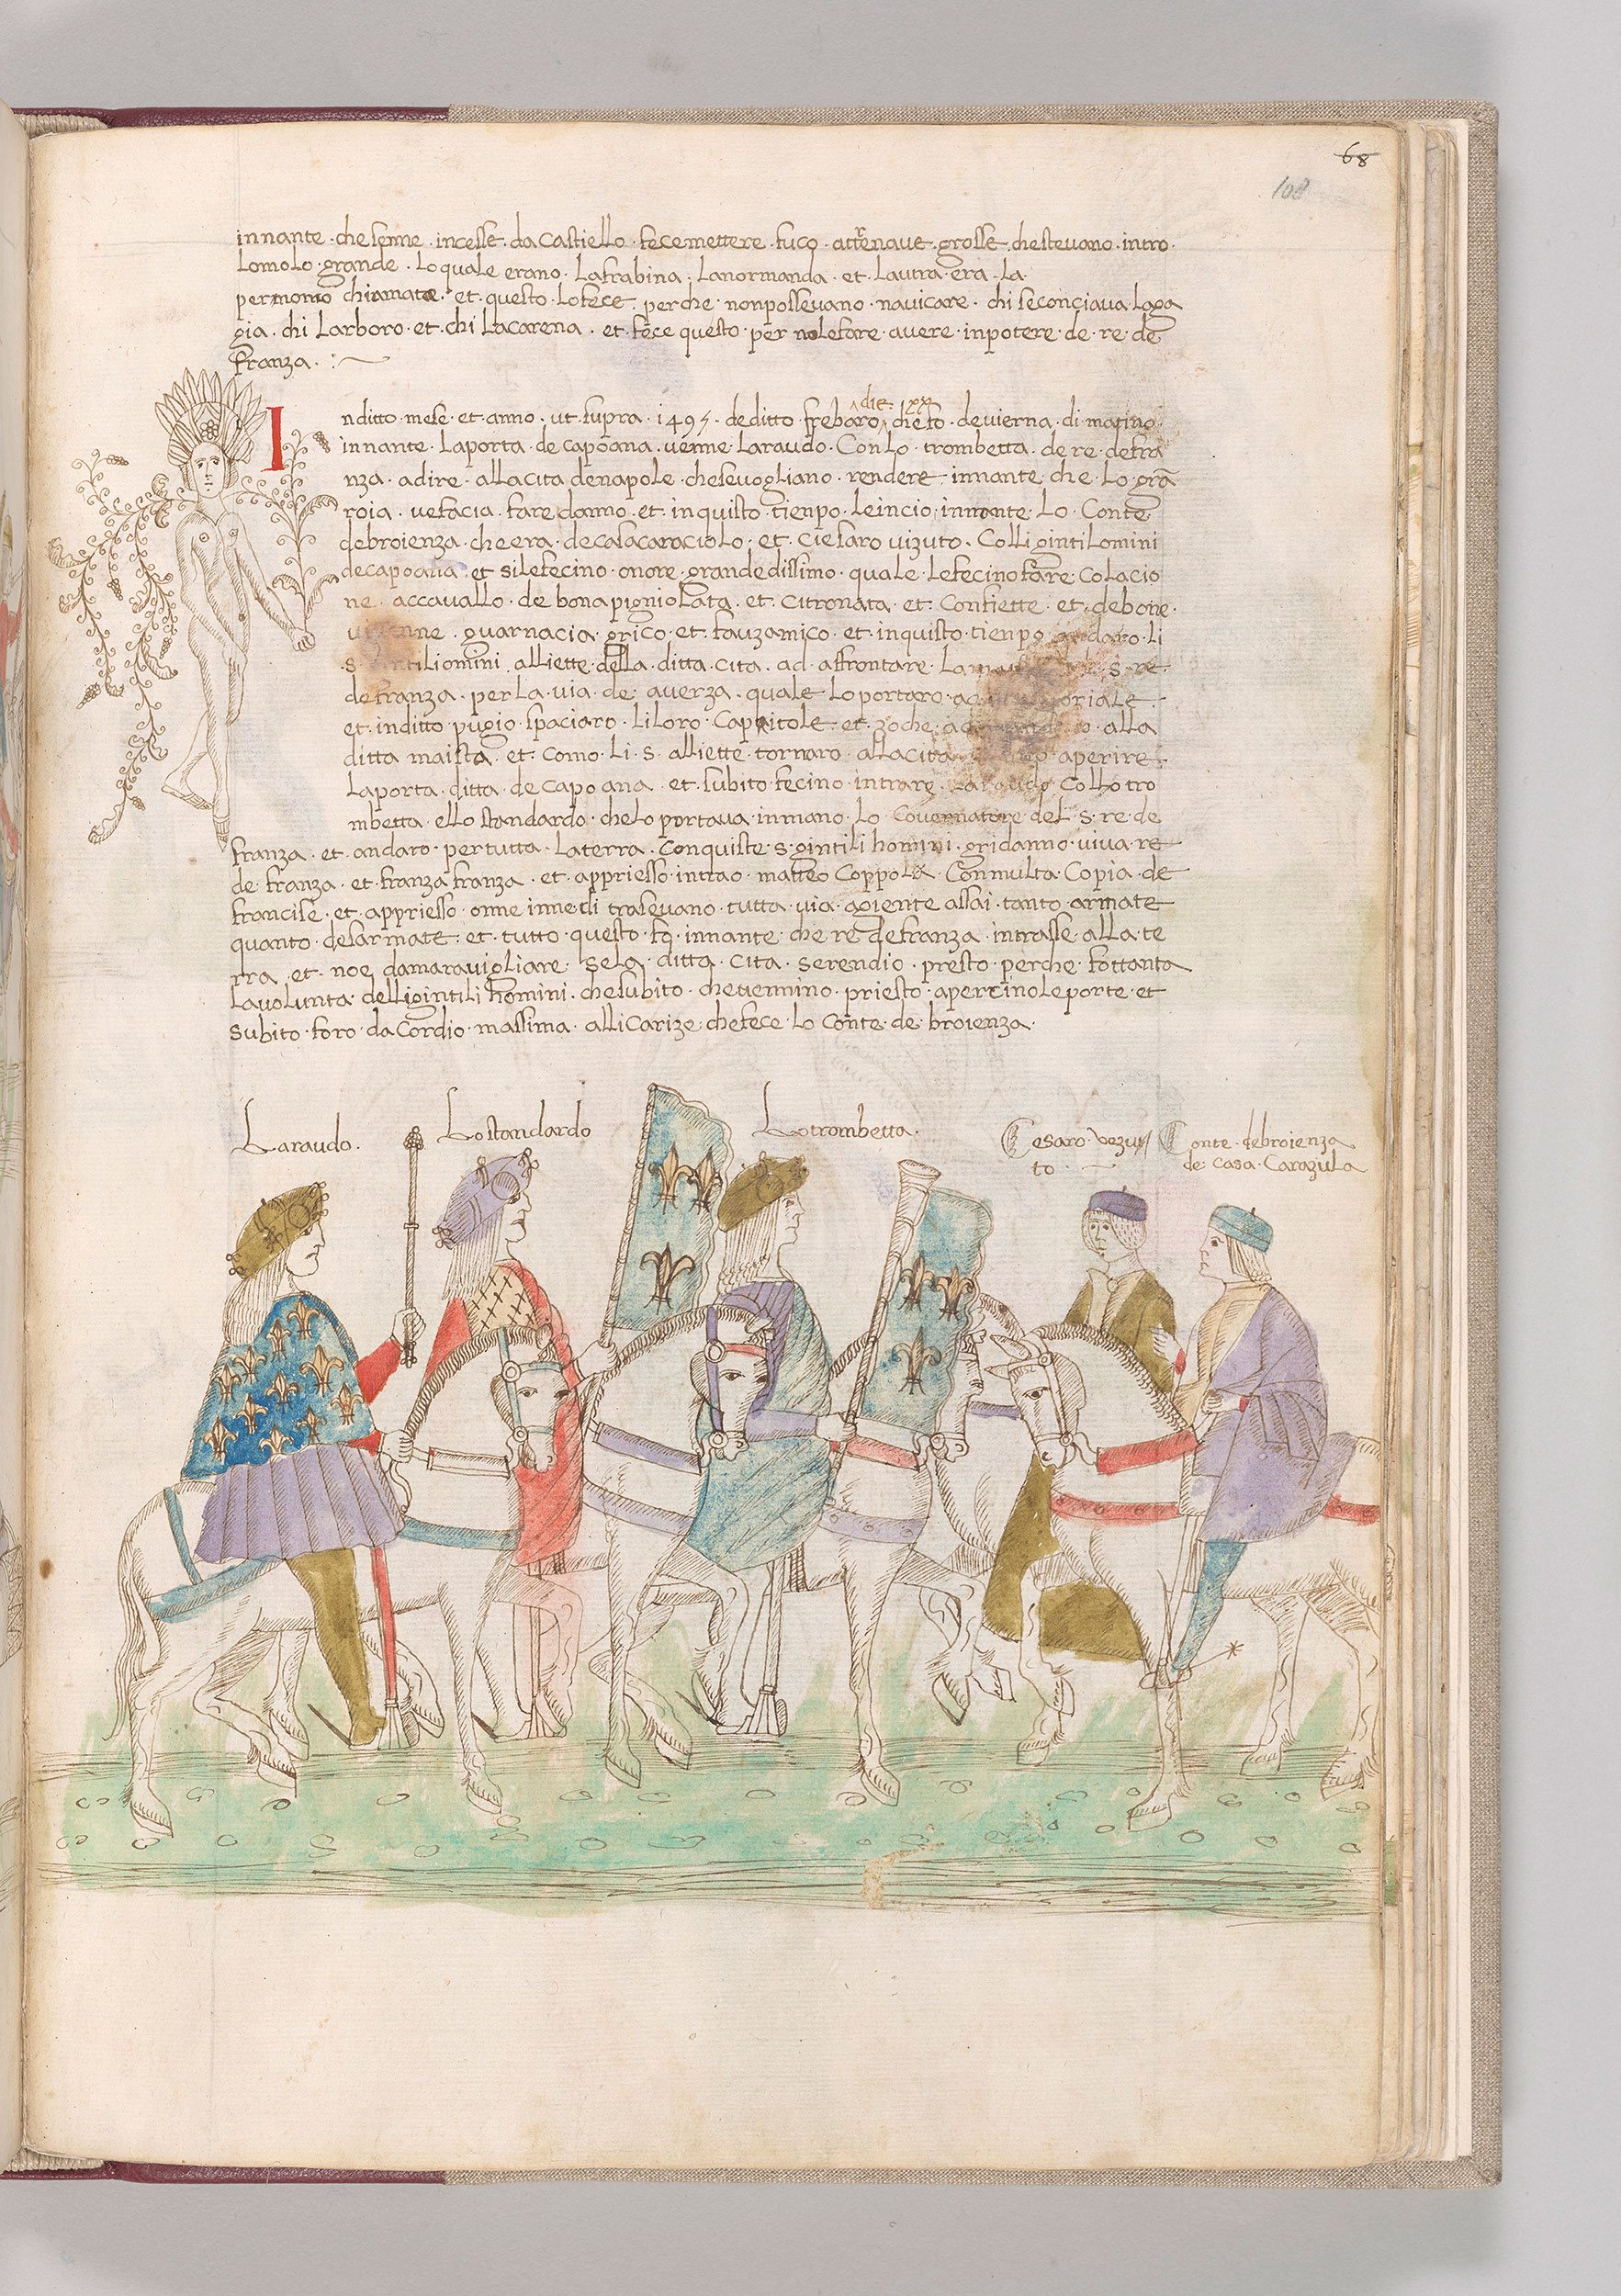 68
108
innante · che senne · incesse · da castiello · fece mettere · fuco · attrenaue · grosse · che stevano · intro ·
Lo molo · grande · Lo quale erano · La frabina · La normanda · et · Lautra · era · La ·
permonto chiamata · et · questo · Lo fece · perche · non possevano · navicare · chi se conciava · La ga
gia · chi Larboro · et · chi La carena · et · fece questo · per no le fare · avere · in potere · de · re · de
franza · : ~
I
nditto · mese · et · anno · ut · supra · 1495 · de ditto · frebaro · die · xx · che fo · de vierna · di matino ·
innante · La porta · de capoana · venne · Laraudo · Con Lo · trombetta · de re · de fra
nza · a dire · alla cita de napole · che se vogliano · rendere · innante che · Lo gra
roia · ve facia · fare danno · et · in quisto · tienpo · Le incio · innante · Lo · Conte
de broienza · che era · de casa caraciolo · et · ciesaro vizuto · Colli gintilomini
de capoana · et si le fecino · onore · grandedissimo · quale · Le fecino fare Colacio
ne · accavallo · de bona pigniolata · et · citronata · et · Confiette · et · de bone ·
guarnacia · grico · et · fauzamico · et · in quisto · tienpo · andaro · Li
s · gintiliomini · alliette · della · ditta · cita · ad · affrontare · La s · re ·
de franza · per La · via · de · averza · quale · Lo portaro · ad poriale ·
et · in ditto · pugio · spaciaro · Li loro · Capitole · et · zoche · alla
ditta maista · et · como · Li · s · alliette · tornaro · alla cita aperire ·
La porta · ditta · de capoana · et · subito · fecino · intrare · Laraudo · Collo tro
mbetta · ello standardo · che lo portava · in mano · Lo Covernatore · del · s · re · de
franza · et · andaro · per tutta · La terra · Con quiste · s · gintili homini · gridanno · viva · re
de · franza · et · franza franza · et · appriesso · intrao · matteo Coppola · Con multa · Copia · de
francise · et · appriesso · onne inne di trasevano · tutta · via · agiente assai · tanto · armate
quanto · desarmate · et · tutto · questo · fo · innante · che re de franza · intrasse · alla · te
rra · et · noe da maravigliare · se La · ditta · cita · se rendio · presto · perche · fo ttanta
La volunta · delli gintili homini · che subito · che vennino · priesto · apercino le porte · et
subito · foro · da Cordio · massima · alli Carize · che fece · Lo Conte · de · broienza ·
Laraudo ·
Lo standardo
Lo trombetta ·
Cesaro · vezu//
to · ~
Conte · de broienza
de · casa · Carazula